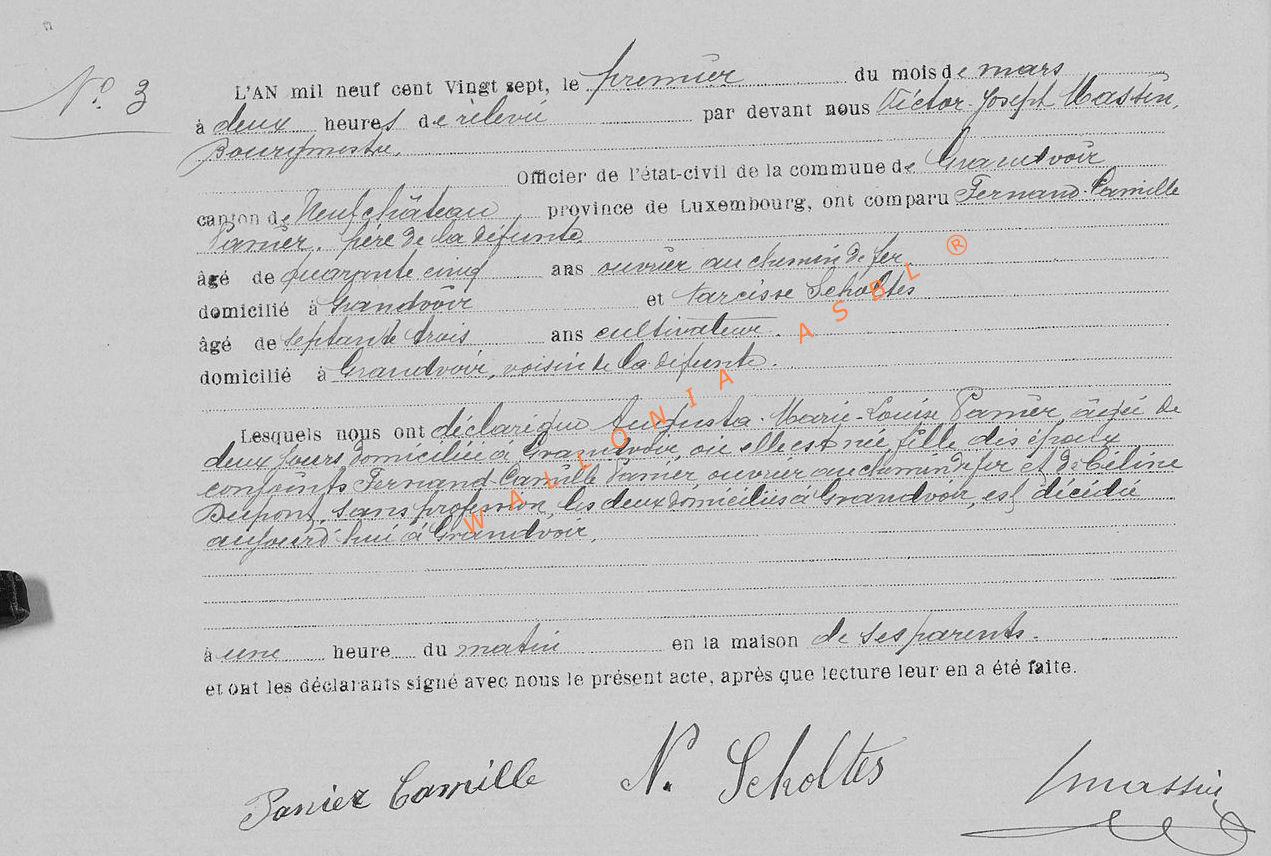 N° 3
L'AN mil neuf cent Vingt sept, le premier du mois de mars
à deux heures de relevée par devant nous Victor-Joseph Massin,
Bourgmestre,
Officier de l'état-civil de la commune de Grandvoir
canton de Neufchâteau, province de Luxembourg, ont comparu Fernand-Camille
Panier, père de la défunte,
âgé de quarante cinq ans ouvrier au chemin de fer
domicilié à Grandvoir et Narcisse Scholtes
âgé de septante trois ans cultivateur.
domicilié à Grandvoir, voisin de la défunte.
Lesquels nous ont déclaré que Augusta-Marie-Louise Panier, âgée de
deux jours domiciliée à Grandvoir, où elle est née, fille des époux
conjoints Fernand-Camille Panier, ouvrier au chemin de fer et de Céline
Dupont, sans profession, les deux domiciliés à Grandvoir, est décédée
aujourd'hui à Grandvoir,
à une heure du matin en la maison de ses parents.
et ont les déclarants signé avec nous le présent acte, après que lecture leur en a été faite.
Panier Camille N. Scholtes Vmassin
WALLONIA ASBL ®